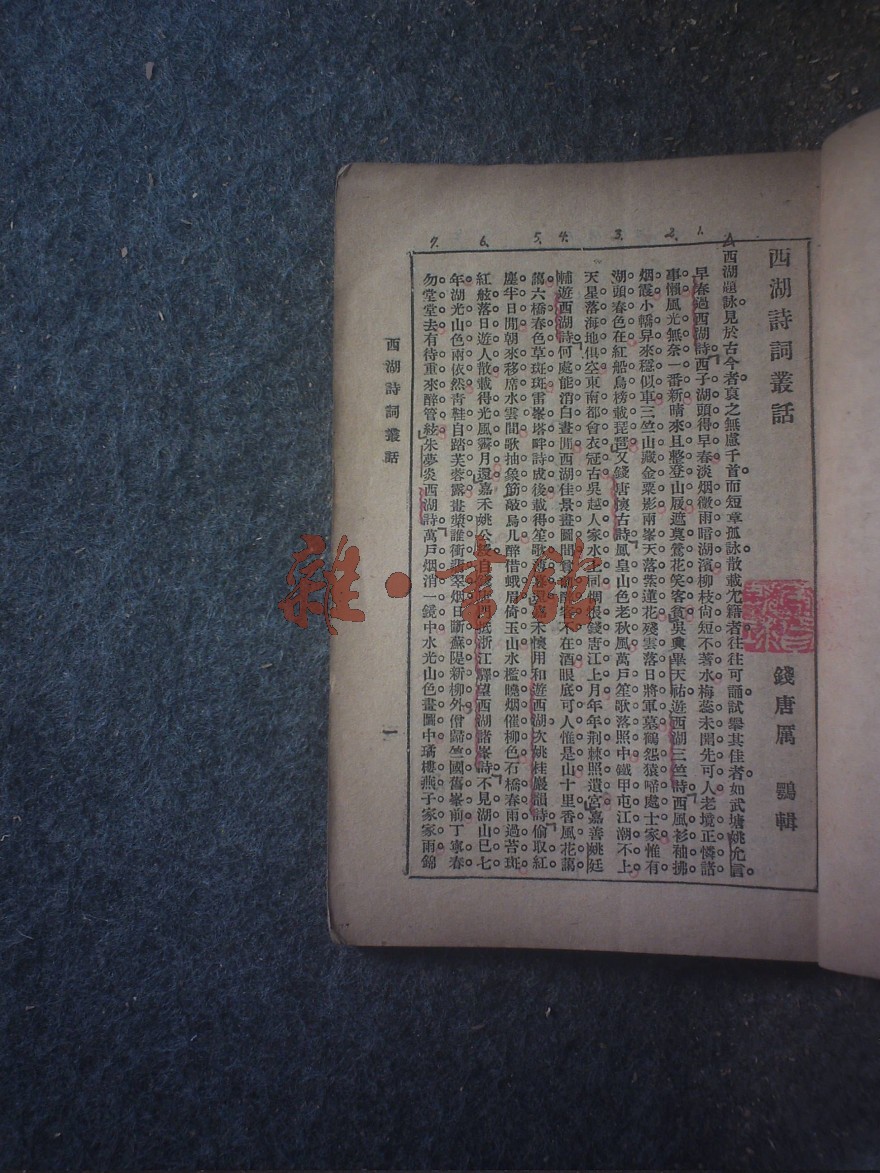 西湖詩詞叢話
錢唐厲 鶚輯
西湖題詠見於古今者哀之無慮千首而短章孤詠散載冗籍者往往可誦試舉其佳者如武塘姚允言
早春過西湖詩西子湖頭得早春淡烟微雨暗湖濱柳枝尚短不著水梅蕊未開先可人老境正憐諸
事懶風光無奈一番新晴來且整登山屐遮莫鶯花笑客貧吳興畢天祐遊西湖三竺詩西風衫袖拂
烟霞小轎舁來穩似車三竺山藏金粟影兩峯天落紫蓮花殘雲落日將軍墓鶴怨猿啼處士家惟有
湖頭春色在紅船鳥榜載琵琶又錢唐懷古詩鳳皇山色老秋風萬戶笙歌落照中鐵甲屯江潮不上
天星落海地俱空東南都會衣冠古吳越人家水 祠烟恨錢唐江上月年年荆棘照遺宮嘉善姚廷
輔遊西湖詩何處能消白晝閒西湖佳景畫圖間 不在酒眼底可人惟是山十里香風花藹
藹六橋春色草斑斑雷峯塔畔詩成後載得笙歌 未懷用和遊西湖次姚桂巖韻詩偷取紅
塵半日閒朝來移席水雲間歌抽象筯敲烏几醉借蛾眉倚玉山水檻曉烟催柳色石橋春雨過苔斑
紅舷落日遊人散載得光風霽月還嘉禾姚公 自 浙江驛望西湖諸峯詩不見湖山已七
年湖光山色兩依然青鞋自踏芙蓉露畫槳誰衝翡翠烟日斷蘇隄新柳外僧歸竺國舊峯前丁寧春
勿堂堂去有待重來醉管絃朱夢炎西湖詩萬戶烟消一鏡中水光山色畫圖中瑀樓燕子家家雨錦
西湖詩詞叢話
一
1. 2. 3. 4. 5. 6. 7.
雜·書館